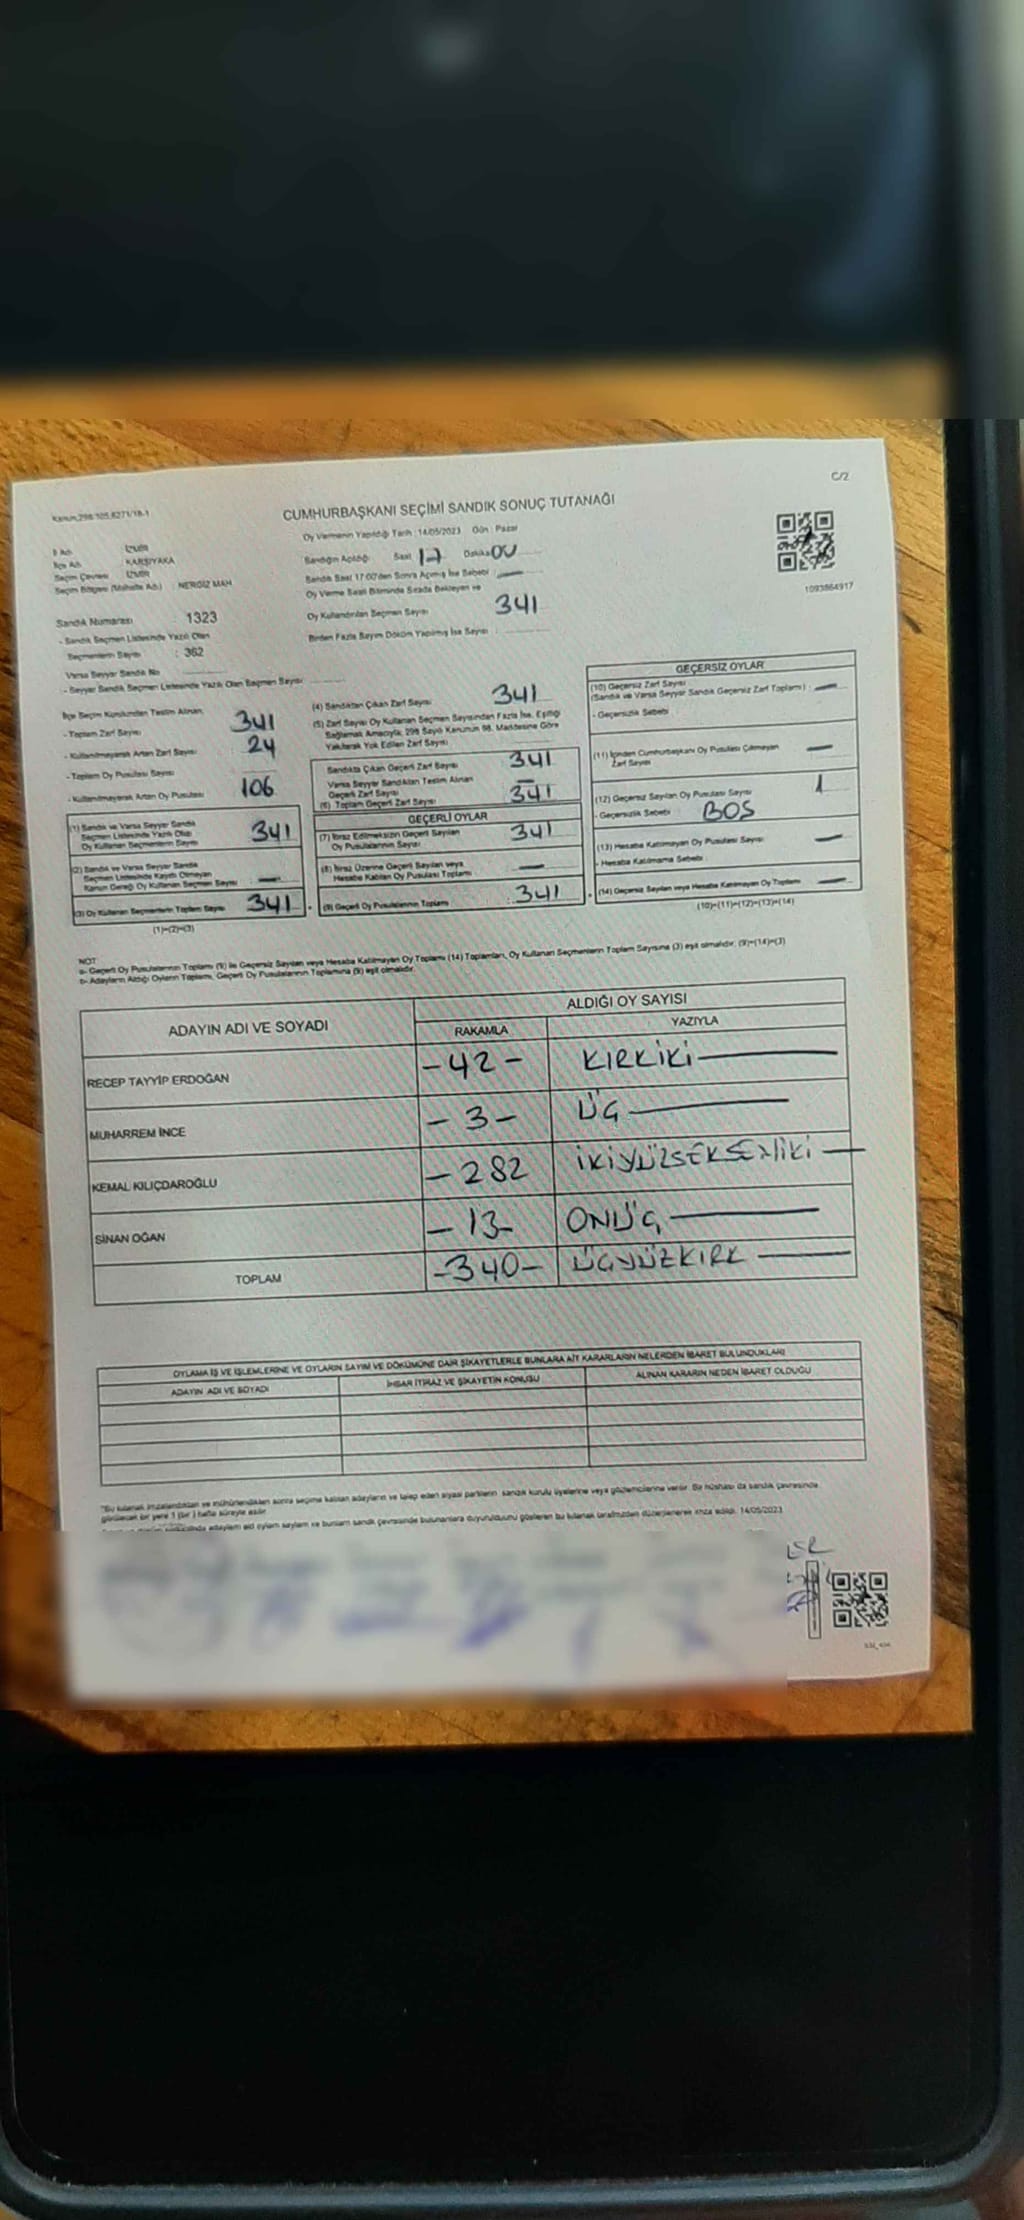 C/2
Kanun:298/105,6271/18-1
CUMHURBAŞKANI SEÇİMİ SANDIK SONUÇ TUTANAĞI
Oy Vermenin Yapıldığı Tarih : 14/05/2023 Gün : Pazar
İl Adı : İZMİR
İlçe Adı : KARŞIYAKA
Seçim Çevresi : İZMİR
Seçim Bölgesi (Mahalle Adı) : NERGİZ MAH
Sandığın Açıldığı Saat 17 Dakika 00
Sandık Saat 17:00'den Sonra Açılmış İse Sebebi :
Oy Verme Saati Bitiminde Sırada Bekleyen ve
Oy Kullandırılan Seçmen Sayısı 341
Birden Fazla Sayım Döküm Yapılmış İse Sayısı :
1093864917
Sandık Numarası : 1323
- Sandık Seçmen Listesinde Yazılı Olan
Seçmenlerin Sayısı : 362
Varsa Seyyar Sandık No
- Seyyar Sandık Seçmen Listesinde Yazılı Olan Seçmen Sayısı
İlçe Seçim Kurulundan Teslim Alınan;
- Toplam Zarf Sayısı 341
- Kullanılmayarak Artan Zarf Sayısı 24
- Toplam Oy Pusulası Sayısı
- Kullanılmayarak Artan Oy Pusulası 106
(1) Sandık ve Varsa Seyyar Sandık
Seçmen Listesinde Yazılı Olup
Oy Kullanan Seçmenlerin Sayısı 341
(2) Sandık ve Varsa Seyyar Sandık
Seçmen Listesinde Kayıtlı Olmayan
Kanun Gereği Oy Kullanan Seçmen Sayısı —
(3) Oy Kullanan Seçmenlerin Toplam Sayısı 341
(1)+(2)=(3)
(4) Sandıktan Çıkan Zarf Sayısı 341
(5) Zarf Sayısı Oy Kullanan Seçmen Sayısından Fazla İse, Eşitliği
Sağlamak Amacıyla; 298 Sayılı Kanunun 98. Maddesine Göre
Yakılarak Yok Edilen Zarf Sayısı
Sandıkta Çıkan Geçerli Zarf Sayısı 341
Varsa Seyyar Sandıktan Teslim Alınan
Geçerli Zarf Sayısı —
(6) Toplam Geçerli Zarf Sayısı 341
GEÇERLİ OYLAR
(7) İtiraz Edilmeksizin Geçerli Sayılan
Oy Pusulasının Sayısı 341
(8) İtiraz Üzerine Geçerli Sayılan veya
Hesaba Katılan Oy Pusulası Toplamı —
(9) Geçerli Oy Pusulalarının Toplamı 341
GEÇERSİZ OYLAR
(10) Geçersiz Zarf Sayısı
(Sandık ve Varsa Seyyar Sandık Geçersiz Zarf Toplamı) : —
- Geçersizlik Sebebi
(11) İçinden Cumhurbaşkanı Oy Pusulası Çıkmayan
Zarf Sayısı —
(12) Geçersiz Sayılan Oy Pusulası Sayısı 1
- Geçersizlik Sebebi BOS
(13) Hesaba Katılmayan Oy Pusulası Sayısı —
- Hesaba Katılmama Sebebi
(14) Geçersiz Sayılan veya Hesaba Katılmayan Oy Toplamı —
(10)+(11)+(12)+(13)=(14)
NOT
a- Geçerli Oy Pusulalarının Toplamı (9) ile Geçersiz Sayılan veya Hesaba Katılmayan Oy Toplamı (14) Toplamları, Oy Kullanan Seçmenlerin Toplam Sayısına (3) eşit olmalıdır. (9)+(14)=(3)
b- Adayların Aldığı Oyların Toplamı, Geçerli Oy Pusulalarının Toplamına (9) eşit olmalıdır.
ADAYIN ADI VE SOYADI ALDIĞI OY SAYISI
RAKAMLA YAZIYLA
RECEP TAYYİP ERDOĞAN -42- KIRKİKİ
MUHARREM İNCE -3- ÜÇ
KEMAL KILIÇDAROĞLU -282 İKİYÜZSEKSENİKİ
SİNAN OĞAN -13- ONÜÇ
TOPLAM -340- ÜÇYÜZKIRK
OYLAMA İŞ VE İŞLEMLERİNE VE OYLARIN SAYIM VE DÖKÜMÜNE DAİR ŞİKAYETLERLE BUNLARA AİT KARARLARIN NELERDEN İBARET BULUNDUKLARI
ADAYIN ADI VE SOYADI İHBAR İTİRAZ VE ŞİKAYETİN KONUSU ALINAN KARARIN NEDEN İBARET OLDUĞU
"Bu tutanak imzalandıktan ve mühürlendikten sonra seçime katılan adayların ve talep eden siyasi partilerin sandık kurulu üyelerine veya gözlemcilerine verilir. Bir nüshası da sandık çevresinde
görülecek bir yere 1 (bir ) hafta süreyle asılır.